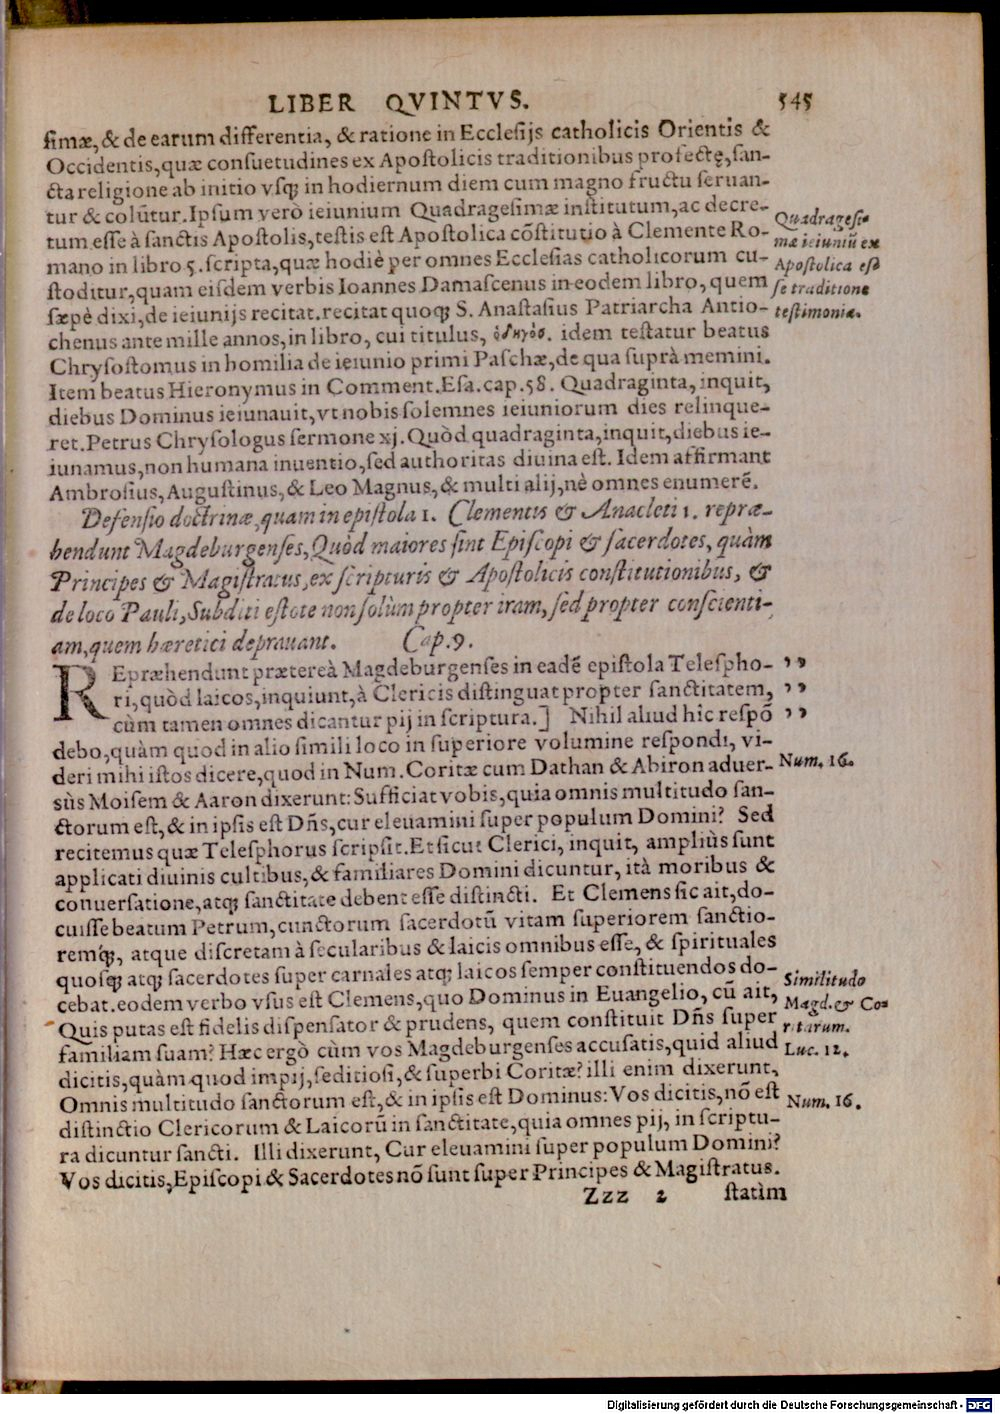 LIBER QVINTVS. 545
ſimæ, & de earum differentia, & ratione in Eccleſijs catholicis Orientis &
Occidentis, quæ conſuetudines ex Apoſtolicis traditionibus profectę, ſan-
cta religione ab initio vſq; in hodiernum diem cum magno fructu ſeruan-
tur & colūtur. Ipſum verò ieiunium Quadrageſimæ inſtitutum, ac decre-
tum eſſe à ſanctis Apoſtolis, teſtis eſt Apoſtolica cōſtitutio à Clemente Ro-
mano in libro 5. ſcripta, quæ hodiè per omnes Eccleſias catholicorum cu-
ſtoditur, quam eiſdem verbis Ioannes Damaſcenus in eodem libro, quem
ſæpè dixi, de ieiunijs recitat. recitat quoq; S. Anaſtaſius Patriarcha Antio-
chenus ante mille annos, in libro, cui titulus, ὁδηγόσ. idem teſtatur beatus
Chryſoſtomus in homilia de ieiunio primi Paſchæ, de qua ſuprà memini.
Item beatus Hieronymus in Comment. Eſa. cap. 58. Quadraginta, inquit,
diebus Dominus ieiunauit, vt nobis ſolemnes ieiuniorum dies relinque-
ret. Petrus Chryſologus ſermone xj. Quòd quadraginta, inquit, diebus ie-
iunamus, non humana inuentio, ſed authoritas diuina eſt. Idem affirmant
Ambroſius, Auguſtinus, & Leo Magnus, & multi alij, nè omnes enumerē.
Quadrageſi-
mæ ieiuniū ex
Apoſtolica eſ-
ſe traditione
teſtimonia.
Defenſio doctrinæ, quam in epiſtola 1. Clementis & Anacleti 1. repræ-
hendunt Magdeburgenſes, Quòd maiores ſint Epiſcopi & ſacerdotes, quàm
Principes & Magiſtratus, ex ſcripturis & Apoſtolicis conſtitutionibus, &
de loco Pauli, Subditi eſtote non ſolùm propter iram, ſed propter conſcienti-
am, quem hæretici deprauant. Cap. 9.
REpræhendunt prætereà Magdeburgenſes in eadē epiſtola Teleſpho- ,,
ri, quòd laicos, inquiunt, à Clericis diſtinguat propter ſanctitatem, ,,
cùm tamen omnes dicantur pij in ſcriptura.] Nihil aliud hic reſpō ,,
debo, quàm quod in alio ſimili loco in ſuperiore volumine reſpondi, vi-
deri mihi iſtos dicere, quod in Num. Coritæ cum Dathan & Abiron aduer-
sùs Moiſem & Aaron dixerunt: Sufficiat vobis, quia omnis multitudo ſan-
ctorum eſt, & in ipſis eſt Dn̄s, cur eleuamini ſuper populum Domini? Sed
recitemus quæ Teleſphorus ſcripſit. Et ſicut Clerici, inquit, ampliùs ſunt
applicati diuinis cultibus, & familiares Domini dicuntur, ità moribus &
conuerſatione, atq; ſanctitate debent eſſe diſtincti. Et Clemens ſic ait, do-
cuiſſe beatum Petrum, cunctorum ſacerdotū vitam ſuperiorem ſanctio-
remq́;, atque diſcretam à ſecularibus & laicis omnibus eſſe, & ſpirituales
quoſq; atq; ſacerdotes ſuper carnales atq; laicos ſemper conſtituendos do-
cebat. eodem verbo vſus eſt Clemens, quo Dominus in Euangelio, cū ait,
Quis putas eſt fidelis diſpenſator & prudens, quem conſtituit Dn̄s ſuper
familiam ſuam? Hæc ergò cùm vos Magdeburgenſes accuſatis, quid aliud
dicitis, quàm quod impij, ſeditioſi, & ſuperbi Coritæ? illi enim dixerunt,
Omnis multitudo ſanctorum eſt, & in ipſis eſt Dominus: Vos dicitis, nō eſt
diſtinctio Clericorum & Laicorū in ſanctitate, quia omnes pij, in ſcriptu-
ra dicuntur ſancti. Illi dixerunt, Cur eleuamini ſuper populum Domini?
Vos dicitis, Epiſcopi & Sacerdotes nō ſunt ſuper Principes & Magiſtratus.
Num. 16.
Similitudo
Magd. & Co-
ritarum.
Luc. 12.
Num. 16.
Zzz 2 ſtatìm
Digitalisierung gefördert durch die Deutsche Forschungsgemeinschaft - DFG